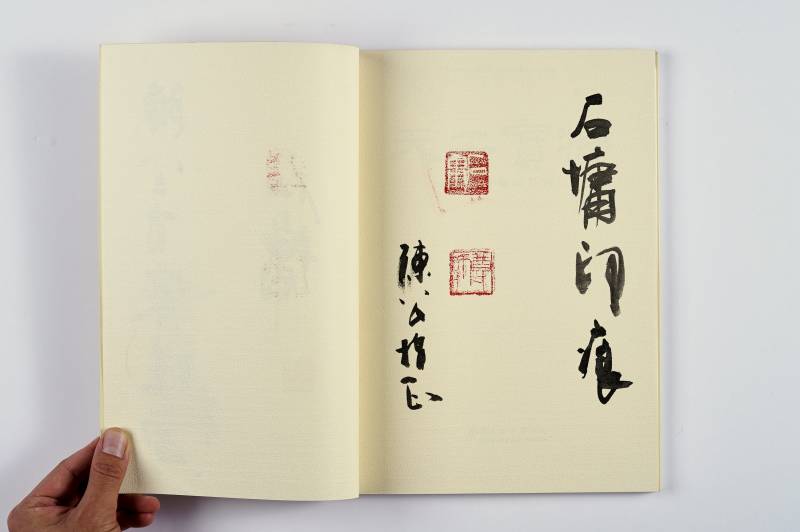 石墉印痕
陳公指正